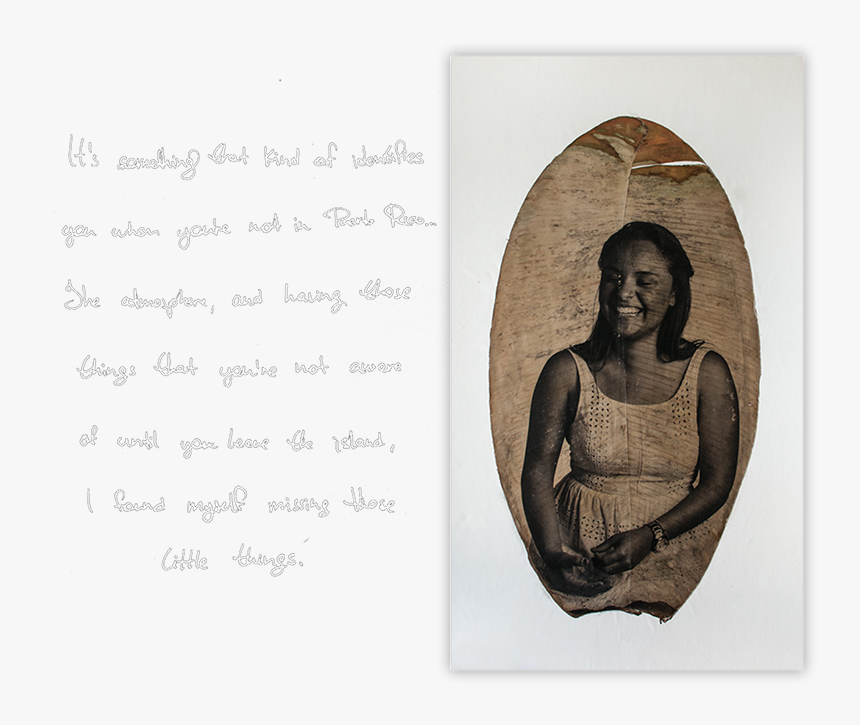 It's something that kind of identifies
you when you're not in Puerto Rico...
The atmosphere, and having those
things that you're not aware
of until you leave the island,
I found myself missing those
little things.